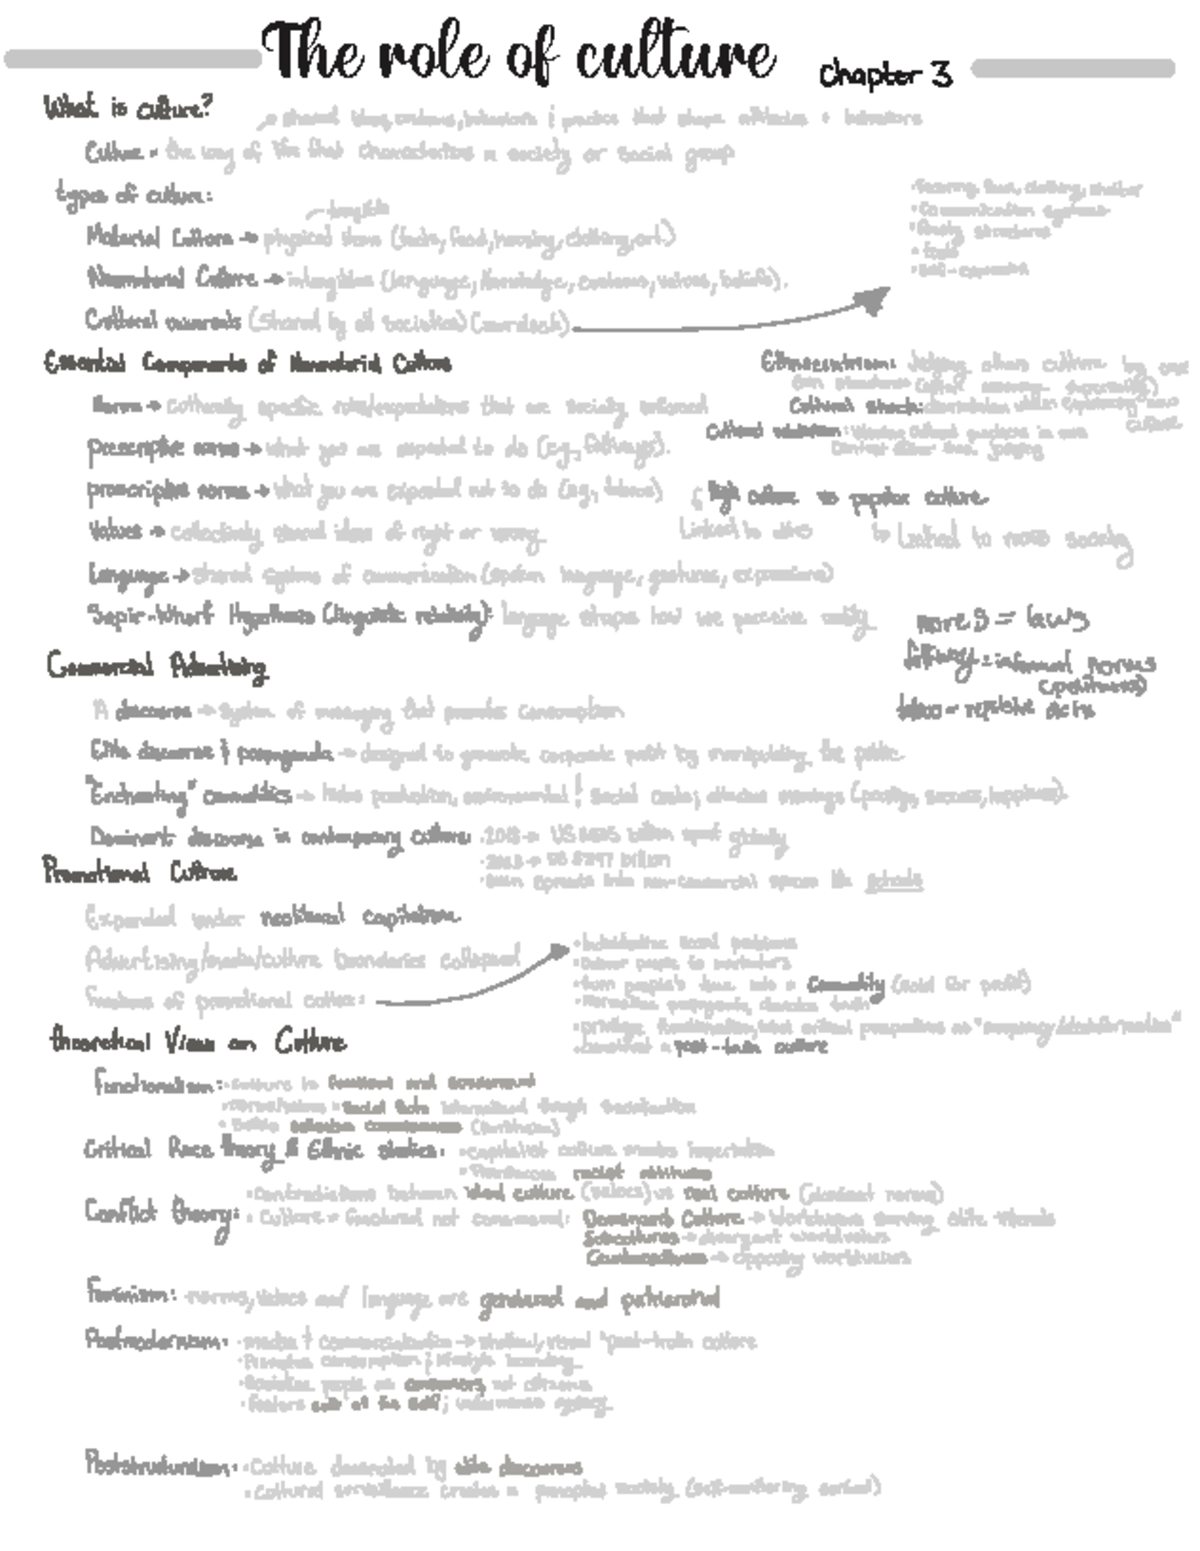 The role of culture chapter 3
What is culture?
shared ideas, customs, behaviors & practice that shape attitudes + behaviors
Culture = the way of life that characterizes a society or social group
types of culture:
tangible
Material Culture → physical items (tools, food, housing, clothing, art.)
Nonmaterial Culture → intangibles (language, knowledge, customs, values, beliefs).
Cultural universals (shared by all societies) (murdock)
clothing, shelter
• Communication systems
• family structures
• tools
• self-expression
Essential Components of Nonmaterial Culture
Norms → culturally specific rules/expectations that are socially enforced
Prescriptive norms → what you are expected to do (e.g., folkways).
proscriptive norms → what you are expected not to do (e.g., taboos)
Values → collectively shared ideas of right or wrong
Language → shared systems of communication (spoken language, gestures, expressions)
Sapir-Whorf Hypothesis (linguistic relativity): language shapes how we perceive reality
Ethnocentrism: Judging others culture by
own standards
Cultural shock: disorientation when experiencing new
culture
Cultural relativism: Viewing cultural practices in own
context rather than judging
High culture vs popular culture
Linked to elites
↳ Linked to mass society
mores = laws
folkway = informal norms
taboo = repulsive acts
Commercial Advertising
A discourse → system of messaging that promotes consumption
Elite discourse & propaganda → designed to promote corporate profit by manipulating the public
"Enchanting" commodities → hides production, environmental & social costs; attaches meanings (prestige, success, happiness).
Dominant discourse in contemporary culture: • 2018 → billion spent globally
billion
non-commercial spaces like schools
Promotional Culture
Expanded under neoliberal capitalism
Advertising/media/culture boundaries collapsed
Functions of promotional culture:
• Individualize social problems
• Deliver people to marketers
• turn people's time into a Commodity (sold for profit)
• Normalize propaganda,
• privilege
• construct a post-truth culture
Theoretical Views on Culture
Functionalism: • Culture is functional and consensual
Social facts internalized through socialization
collective consciousness (Durkheim)
Critical Race theory & Ethnic studies: • capitalist culture masks imperialism
• Reinforces racist attitudes
• Contradictions between ideal culture (values) vs real culture (dominant norms)
Conflict theory: • Culture = fractured not consensual: Dominant Culture → worldviews serving elite interests
Subcultures → divergent worldviews
Countercultures → opposing worldviews
Feminism: • norms, values and language are gendered and patriarchal
Postmodernism: • media & Commercialization → visual "post-truth culture
• Promotes consumption & lifestyle branding
• Socialize people as consumers, not citizens
• Fosters cult of the self;
Poststructuralism: • Culture dominated by elite discourses
• Cultural surveillance creates a panoptic society (self-monitoring control)